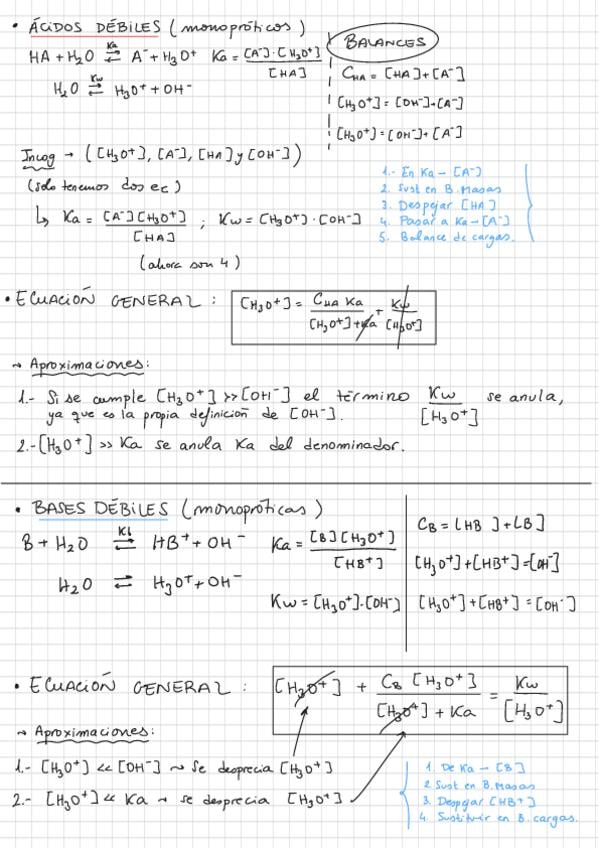 • ÁCIDOS DÉBILES (monopróticos)
BALANCES
HA + H2O ⇌ A⁻ + H3O⁺ Ka = [A⁻]·[H3O⁺] / [HA]
Ka
H2O ⇌ H3O⁺ + OH⁻
Kw
CHA = [HA] + [A⁻]
[H3O⁺] = [OH⁻] + [A⁻]
[H3O⁺] = [OH⁻] + [A⁻]
Incog → ([H3O⁺], [A⁻], [HA] y [OH⁻])
(solo tenemos dos ec)
↳ Ka = [A⁻][H3O⁺] / [HA] ; Kw = [H3O⁺]·[OH⁻]
(ahora son 4)
1.- En Ka – [A⁻]
2. Sust en B. Masas
3. Despejar [HA]
4. Pasar a Ka – [A⁻]
5. Balance de cargas.
• ECUACIÓN GENERAL : [H3O⁺] = CHA Ka / [H3O⁺] + Ka + Kw / [H3O⁺]
→ Aproximaciones:
1.- Si se cumple [H3O⁺] >> [OH⁻] el término Kw / [H3O⁺] se anula,
ya que es la propia definición de [OH⁻].
2.- [H3O⁺] >> Ka se anula Ka del denominador.
• BASES DÉBILES (monopróticas)
B + H2O ⇌ HB⁺ + OH⁻ Ka = [B][H3O⁺] / [HB⁺]
Kb
H2O ⇌ H3O⁺ + OH⁻
Kw = [H3O⁺]·[OH⁻]
CB = [HB ] + [B]
[H3O⁺] + [HB⁺] = [OH⁻]
[H3O⁺] + [HB⁺] = [OH⁻]
• ECUACIÓN GENERAL : [H3O⁺] + CB [H3O⁺] / [H3O⁺] + Ka = Kw / [H3O⁺]
→ Aproximaciones:
1.- [H3O⁺] << [OH⁻] → Se desprecia [H3O⁺]
2.- [H3O⁺] << Ka → se desprecia [H3O⁺]
1. De Ka – [B]
2 Sust en B. Masas
3. Despejar [HB⁺]
4. Sustituir en B. cargas.